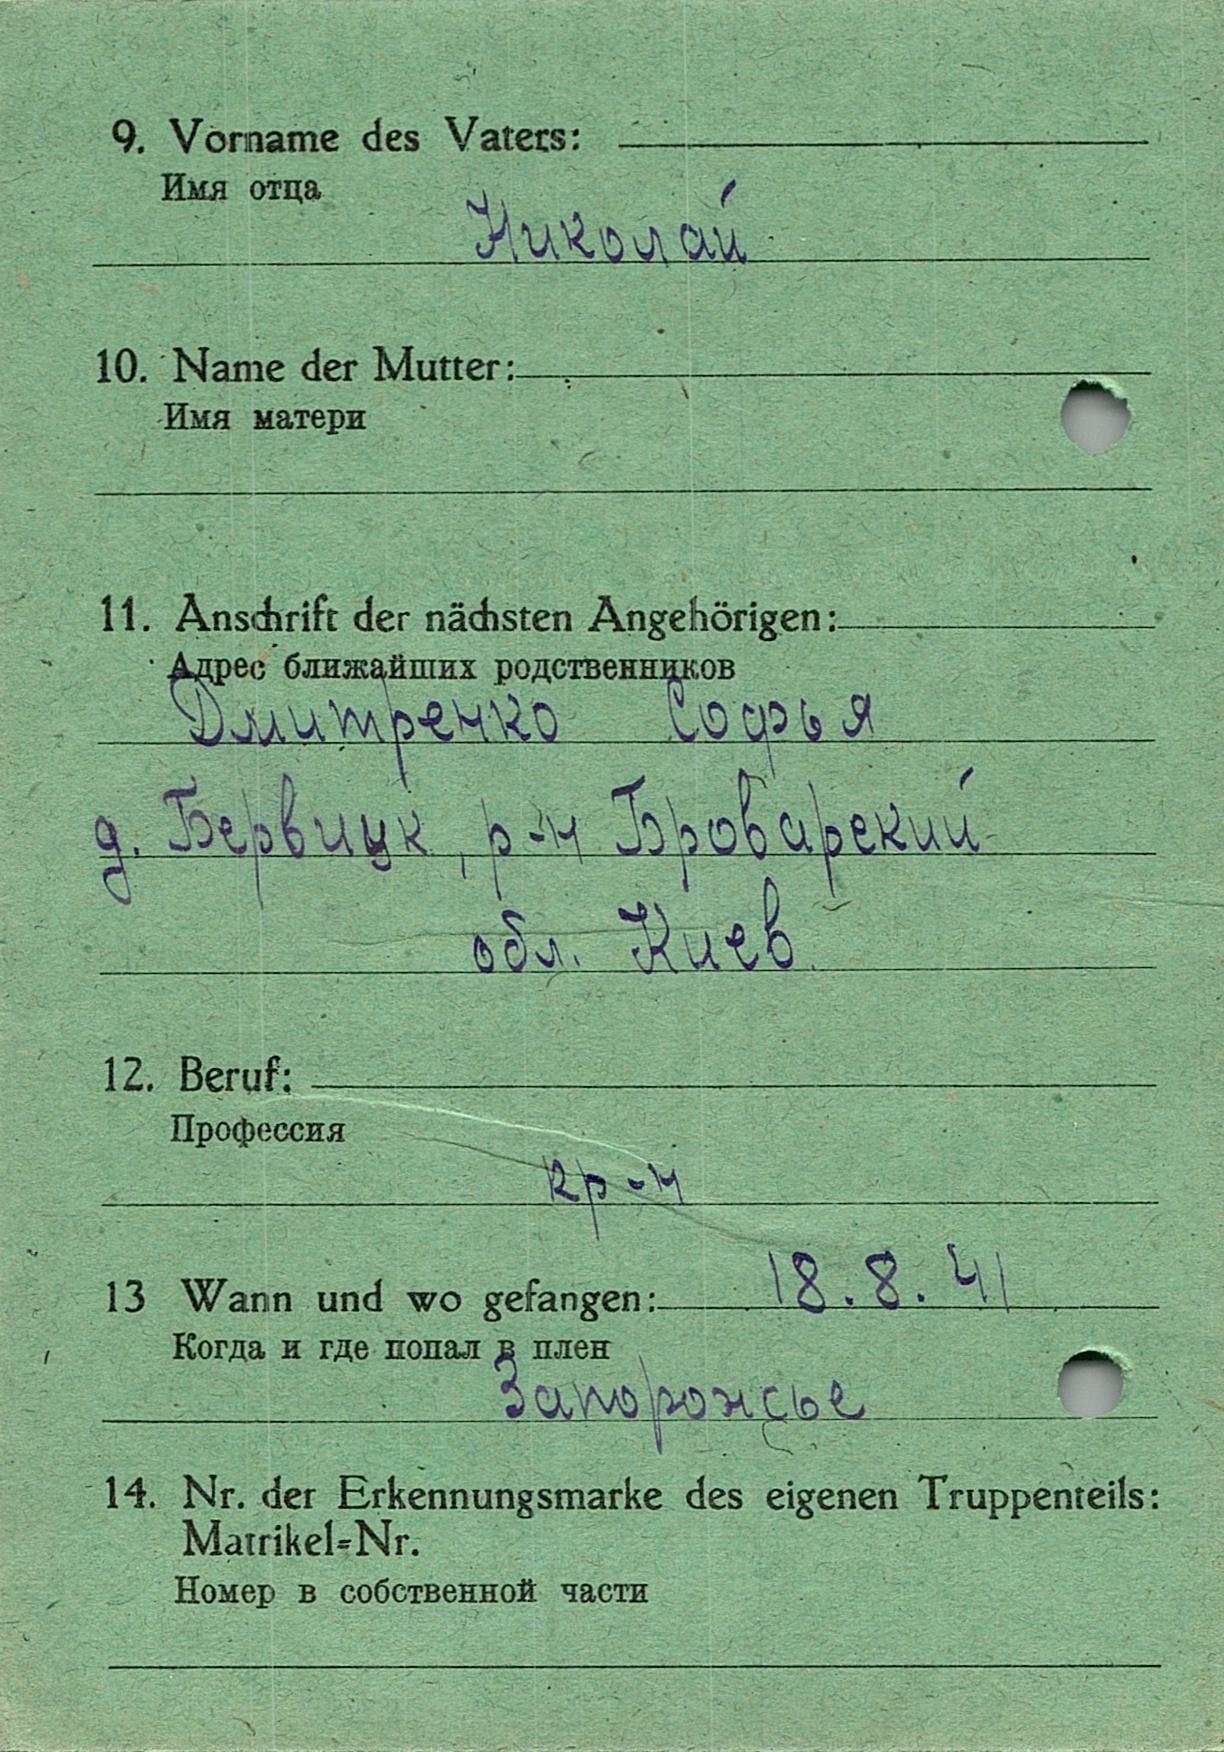 9. Vorname des Vaters:
Имя отца
Николай
10. Name der Mutter:
Имя матери
11. Anschrift der nächsten Angehörigen:
Адрес ближайших родственников
Дмитренко Софья
д. Бервицк, р-н Броварский
обл. Киев.
12. Beruf:
Профессия
кр-н
13 Wann und wo gefangen: 18.8.41
Когда и где попал в плен
Запорожье
14. Nr. der Erkennungsmarke des eigenen Truppenteils:
Matrikel=Nr.
Номер в собственной части